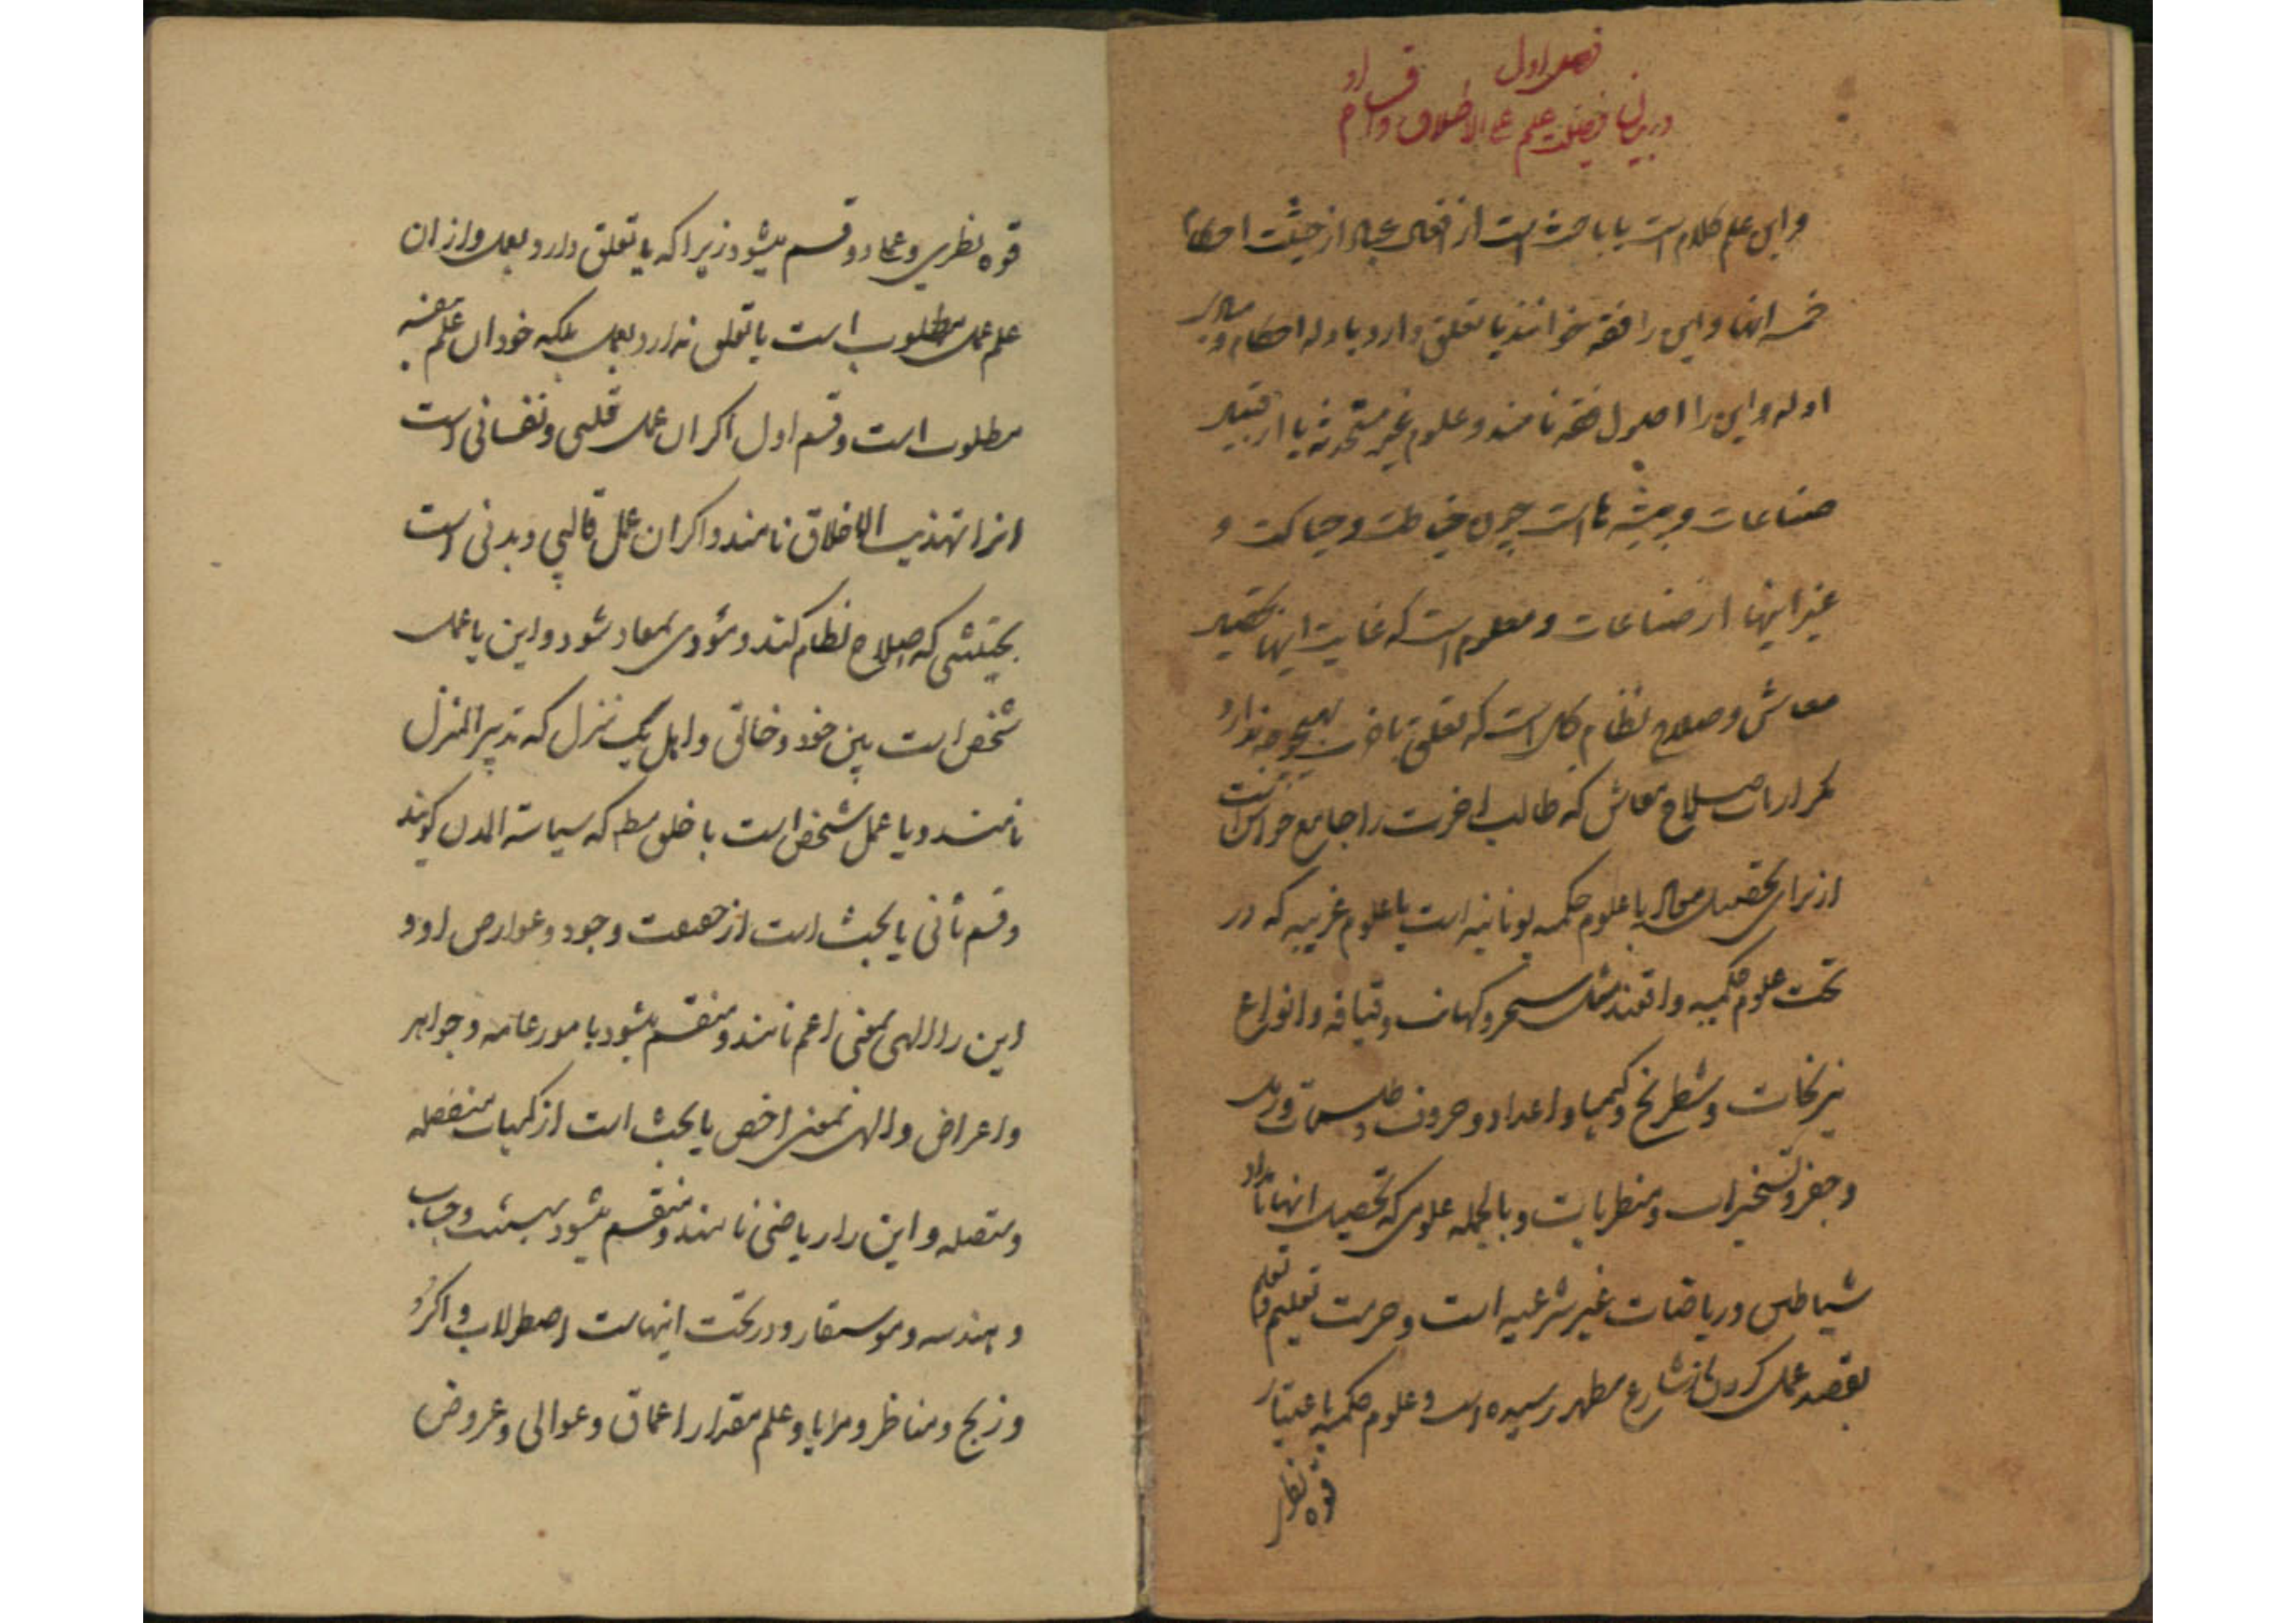 فصل اول
در بیان فضیلت علم علی الاطلاق و اقسام او
و این علم کلام است یا باحث است از افعال عباد از حیثت احکام
خمسه انها و این را فقه خوانند یا تعلق دارد بادله احکام و مدارک
ادله و این را اصول فقه نامند و علوم غیر یا از قبیل
صناعات و پیشه ها است چون خیاطت و حیاکت و
غیر اینها از صناعات و معلوم است که غایت اینها تحصیل
معاش و صلاح نظام کل است که تعلق باخرت بهیچوجه ندارد
مکر از باب صلاح معاش که طالب اخرت را
از برای تحصیل یا علوم حکمیه یونانیه است یا علوم غریبه که در
تحت علوم حکمیه واقعند مثل سحر و کهانت و قیافه و انواع
نیرنجات و شطرنج و کیمیا و اعداد و حروف و طلسمات و رمل
و جفر و تسخیرات و و بالجمله علومی که تحصیل انها
شیاطین و ریاضات غیر شرعیه است و حرمت تعلیم و تعلم
بقصد عمل کردن از شارع مطهر رسیده است و علوم حکمیه باعتبار
قوه نظر
قوه نظری و عملی دو قسم میشود زیرا که یا تعلق دارد بعمل و از ان
علم عمل مطلوب است یا تعلق ندارد بعمل بلکه خود ان علم بنفسه
مطلوب است و قسم اول اکر ان عمل قلبی و نفسانی است
انرا تهذیب الاخلاق نامند و اکر ان عمل قالبی و بدنی است
بحیثیتی که اصلاح نظام کند و مؤدی بمعاد شود و این یا عمل
شخص است بین خود و خالق و اهل یک منزل که تدبیر المنزل
نامند و یا عمل شخص است با خلق مط که سیاسة المدن کویند
و قسم ثانی یا بحث است از حقیقت وجود و عوارض او و
این را الهی بمعنی اعم نامند و منقسم میشود بامور عامه و جواهر
و اعراض و الهی بمعنی اخص یا بحث است از کمیات منفصله
و متصله و این را ریاضی نامند و منقسم میشود بهیئت و حساب
و هندسه و موسیقار و در تحت اینهاست اصطرلاب و اکر و
و زیج و مناظر و مرایا و علم مقدار اعماق و عوالی و عروض